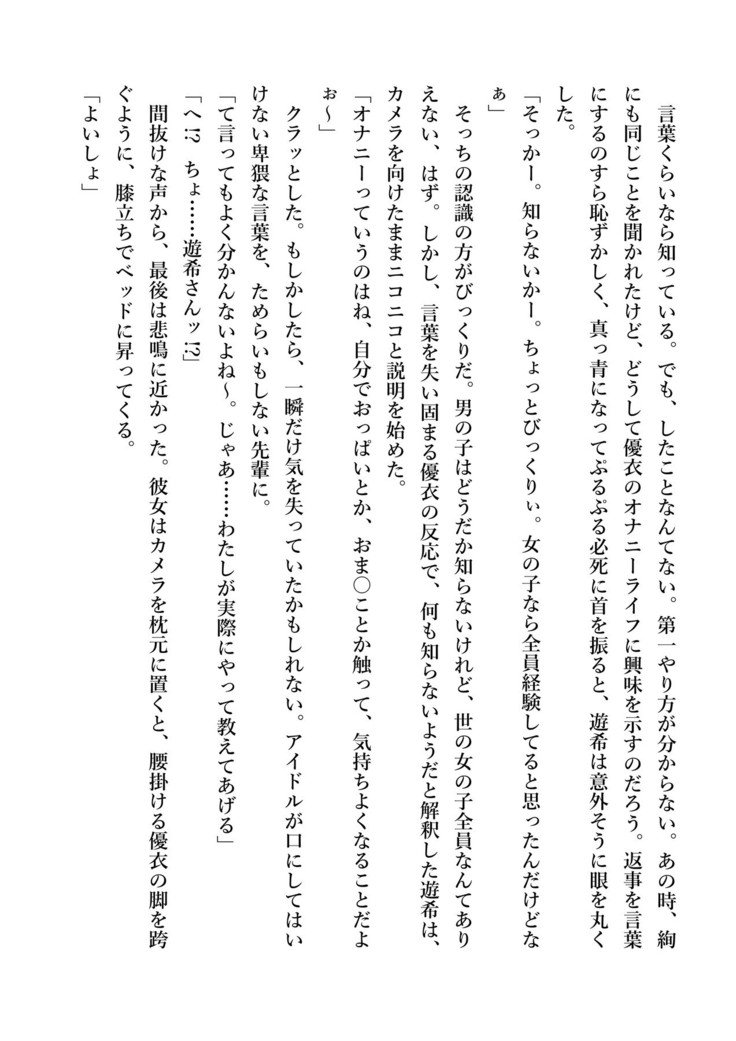 言葉くらいなら知っている。でも、したことなんてない。第一やり方が分からない。あの時、絢
にも同じことを聞かれたけど、どうして優衣のオナニーライフに興味を示すのだろう。返事を言葉
にするのすら恥ずかしく、真っ青になってぷるぷる必死に首を振ると、遊希は意外そうに眼を丸く
した。
「そっかー。知らないかー。ちょっとびっくりぃ。女の子なら全員経験してると思ったんだけどな
ぁ」
そっちの認識の方がびっくりだ。男の子はどうだか知らないけれど、世の女の子全員なんてあり
えない、はず。しかし、言葉を失い固まる優衣の反応で、何も知らないようだと解釈した遊希は、
カメラを向けたままニコニコと説明を始めた。
「オナニーっていうのはね、自分でおっぱいとか、おま〇ことか触って、気持ちよくなることだよ
ぉ～」
クラッとした。もしかしたら、一瞬だけ気を失っていたかもしれない。アイドルが口にしてはい
けない卑猥な言葉を、ためらいもしない先輩に。
「て言ってもよく分かんないよね～。じゃあ……わたしが実際にやって教えてあげる」
「へ!?　ちょ……遊希さんッ!?」
間抜けな声から、最後は悲鳴に近かった。彼女はカメラを枕元に置くと、腰掛ける優衣の脚を跨
ぐように、膝立ちでベッドに昇ってくる。
「よいしょ」